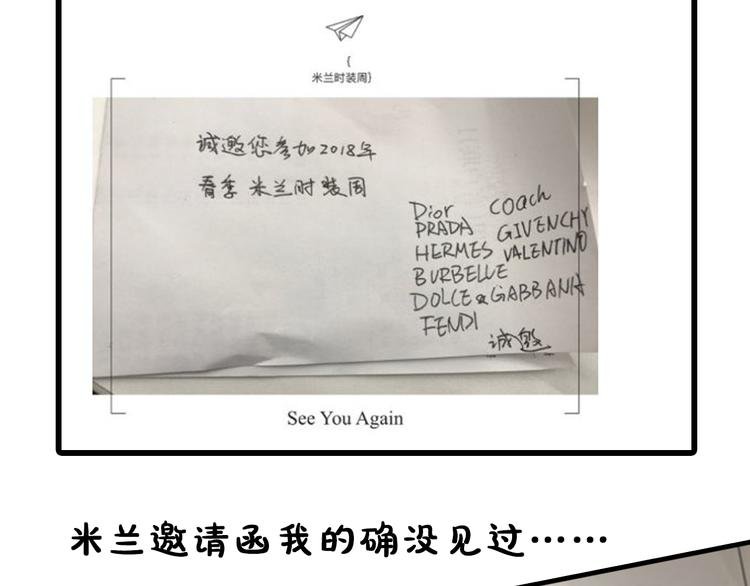 {
米兰时装周}
诚邀您参加2018年
春季 米兰时装周
Dior coach
PRADA GIVENCHY
HERMES VALENTINO
BURBELLE
DOLCE&GABBANA
FENDI
诚邀
See You Again
米兰邀请函我的确没见过……